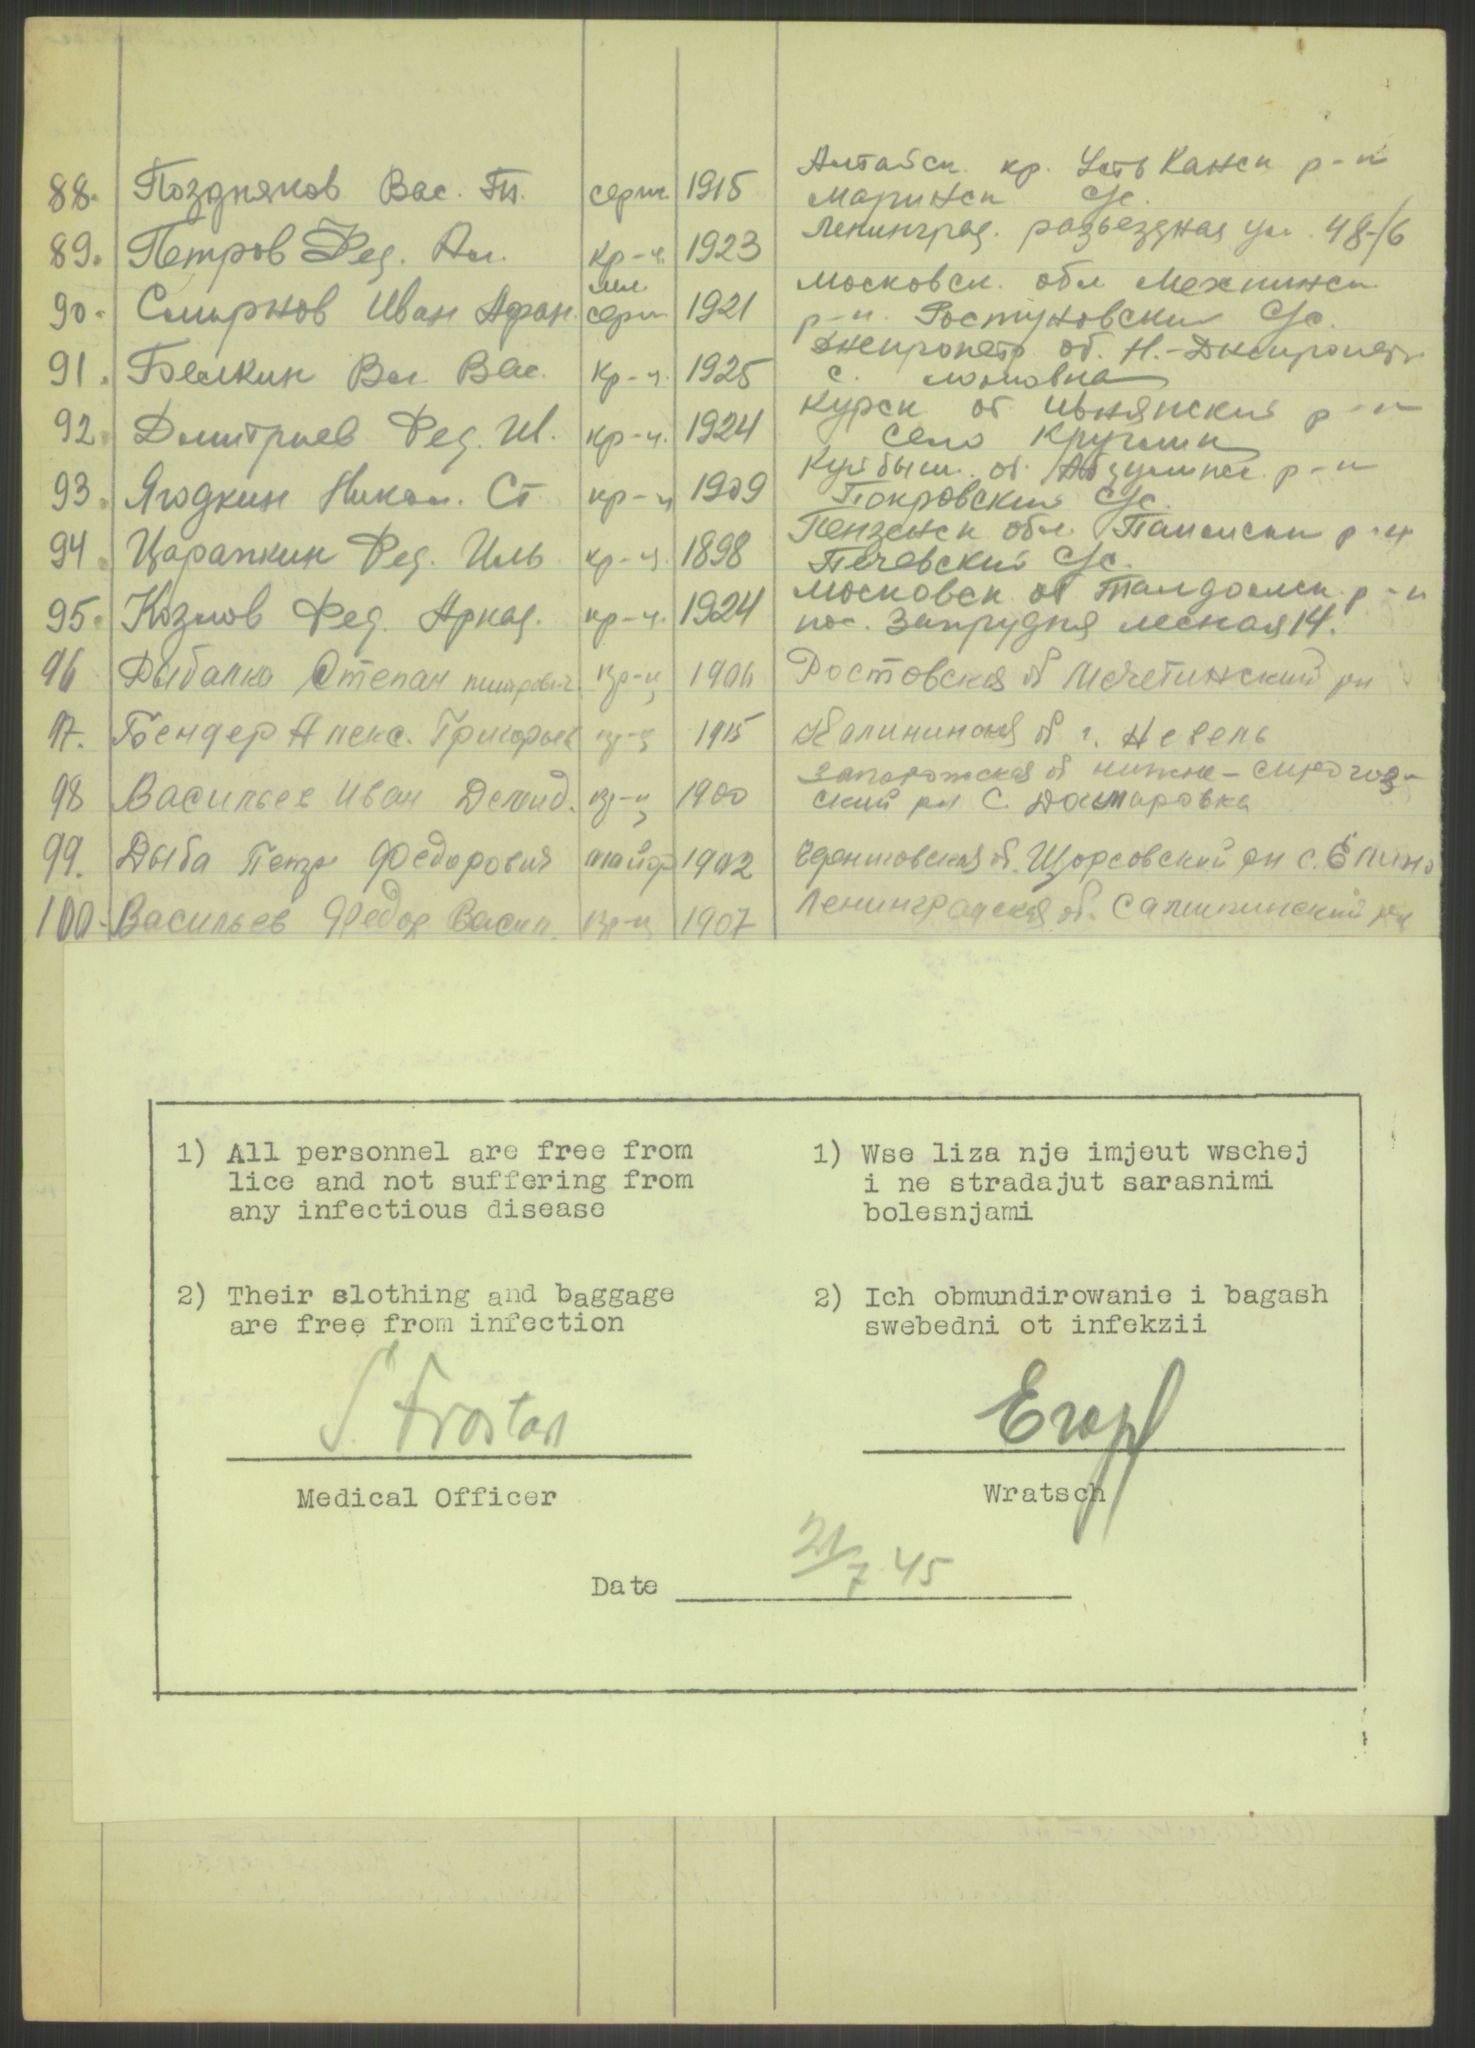 88. Поздняков Вас. Пл. серж. 1915 Алтайск. кр. Усть Канск р-н
Маринск с/с.
89. Петров Фед. Ал. кр-ц. 1923 Ленинград. разъездная ул. 48-/6
90. Смирнов Иван Афан. мл. серж 1921 Московск. обл
р-н. Ростуновский с/с.
91. Белкин Вл. Вас. кр-ц. 1925 Днепропетр. об. Н.-Днепропетр.
с.
92. Дмитриев Фед. И. кр-ц. 1924 Курск об. Ивнянский р-н
село Круглик
93. Ягодкин Никол. Ст кр-ц 1909 Куйбыш. об. р-н
Покровский с/с.
94. Царапкин Фед. Иль кр-ц. 1898 Пензенск обл. р-н
Печевский с/с.
95. Козлов Фед. Аркад. кр-ц. 1924 Московск об Талдомск. р-н
пос. Запрудня лесная 14.
96 Рыбалко Степан кр-ц Ростовская об Мечетинский рн
97. Бендер Алекс. Григорьев кр-ц 1915 Калининская об г. Невель
98 Васильев Иван Демид. кр-ц 1900 Запорожская об нижне-
ский рн с.
99. Дыба Петр Федорович майор 1902 об. Щорсовский рн с. Елино
100. Васильев Федор Васил. кр-ц 1907 Ленинградская об. рн
1) All personnel are free from
lice and not suffering from
any infectious disease
2) Their slothing and baggage
are free from infection
Medical Officer
1) Wse liza nje imjeut wschej
i ne stradajut sarasnimi
bolesnjami
2) Ich obmundirowanie i bagash
swebedni ot infekzii
Wratsch
Date 21/7 45